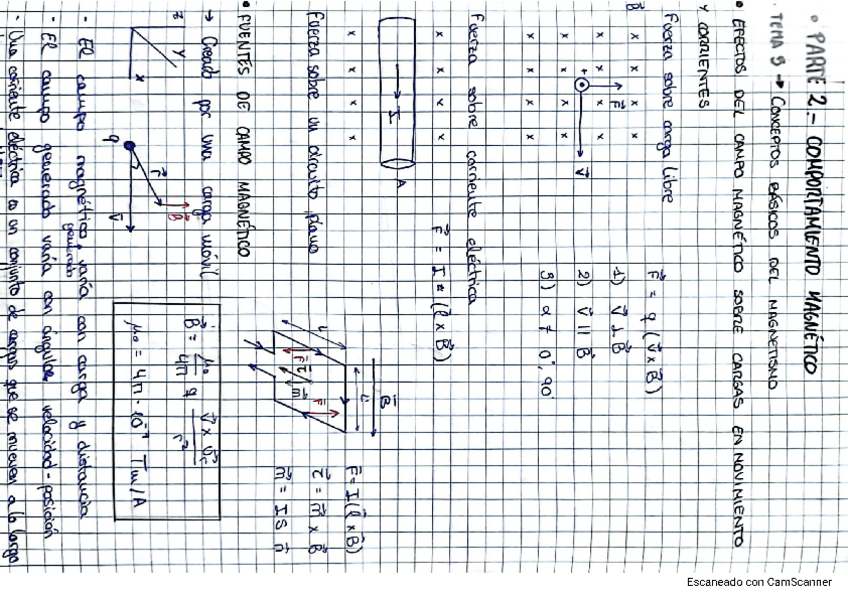 • PARTE 2.- COMPORTAMIENTO MAGNÉTICO
TEMA 9 → CONCEPTOS BÁSICOS DEL MAGNETISMO
• EFECTOS DEL CAMPO MAGNÉTICO SOBRE CARGAS EN MOVIMIENTO
Y CORRIENTES
Fuerza sobre carga libre
F = q (v x B)
B x x x x
F
1) v ⊥ B
x x x x
+ v
2) v || B
x x x x
3) α ≠ 0°, 90
x x x x
Fuerza sobre corriente eléctrica
x x x x
F = I · (l x B)
I A
x x x x
Fuerza sobre un circuito plano
B
F = I (l x B)
τ = m x B
m = I S n
• FUENTES DE CAMPO MAGNÉTICO
→ Creado por una carga móvil
z y x
q r B v
B = μ₀/4π q v x u_r/r²
μ₀ = 4π · 10⁻⁷ Tm/A
- El campo magnético generado varía con carga y distancia
- El campo generado varía con ángulo velocidad - posición
- Una corriente eléctrica es un conjunto de cargas que se mueven a lo largo
Escaneado con CamScanner